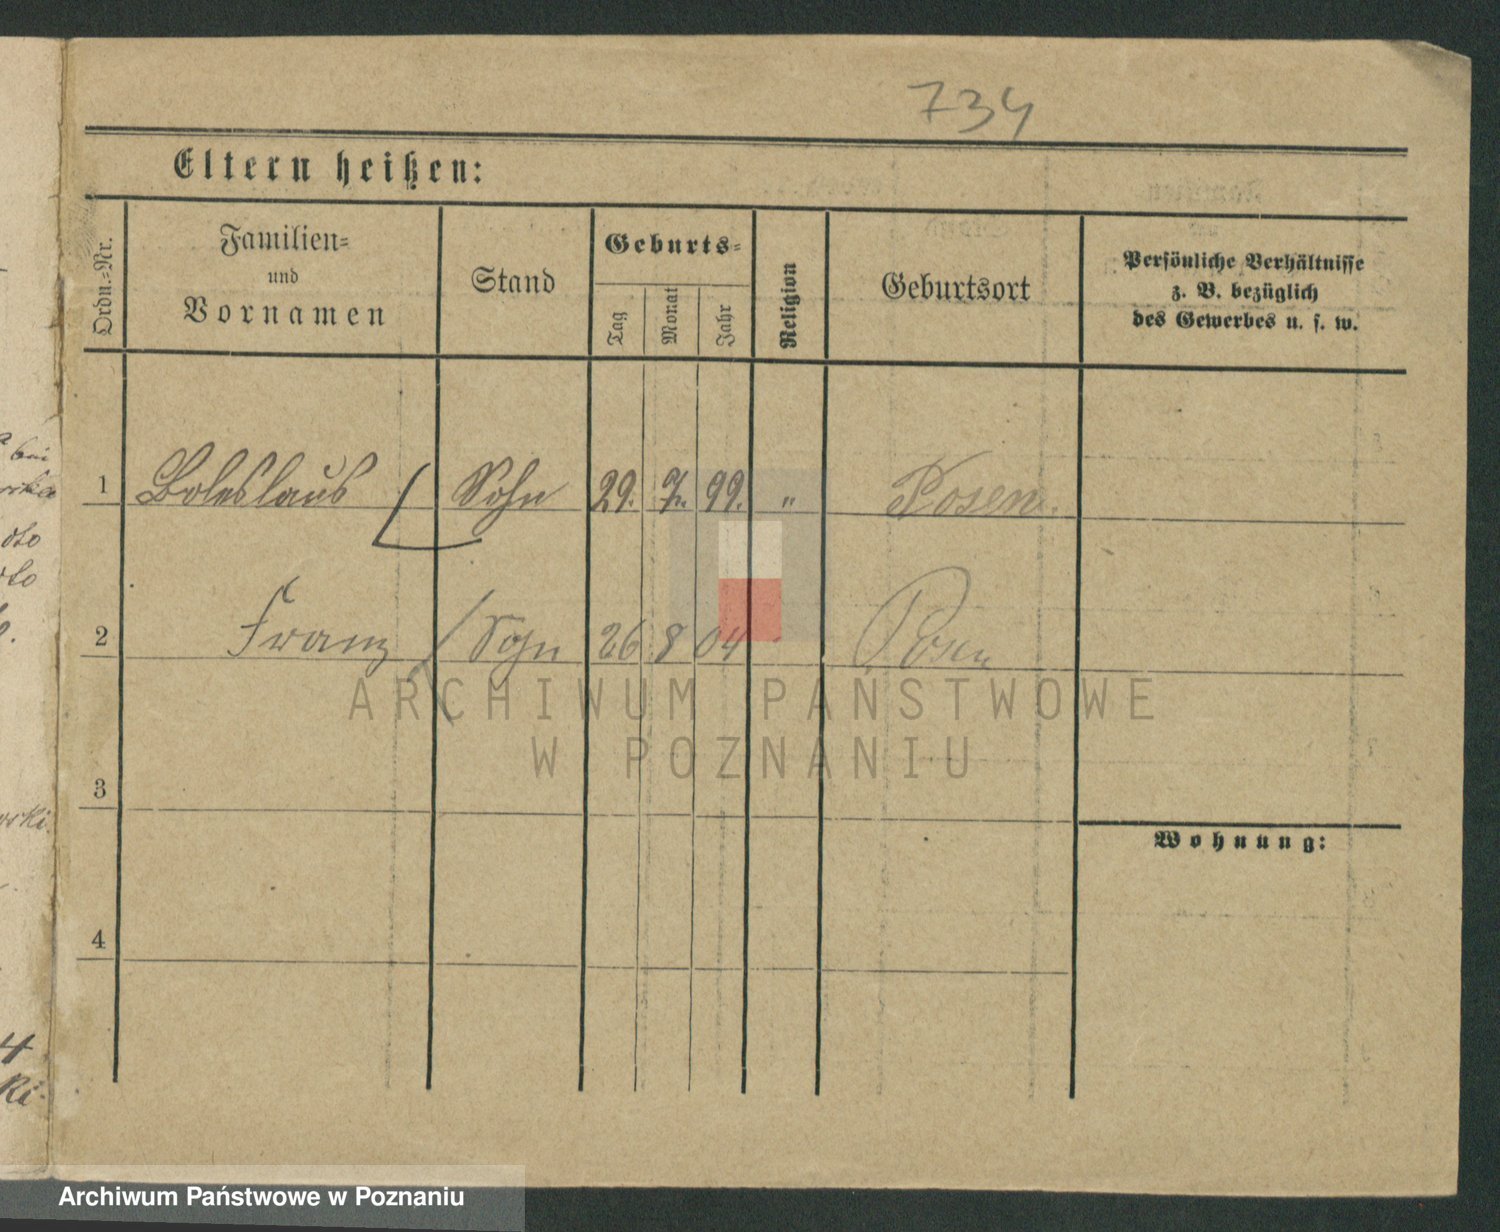 734
Eltern heißen:
Ordn.-Nr.
Familien-
und
Vornamen
Stand
Geburts-
Tag
Monat
Jahr
Religion
Geburtsort
Persönliche Verhältnisse
z. B. bezüglich
des Gewerbes u. s. w.
1 Boleslaus Sohn 29. 7. 99. " Posen.
2 Franz Sohn 26 8 04 Posen
3
4
Wohnung:
ARCHIWUM PAŃSTWOWE
W POZNANIU
Archiwum Państwowe w Poznaniu